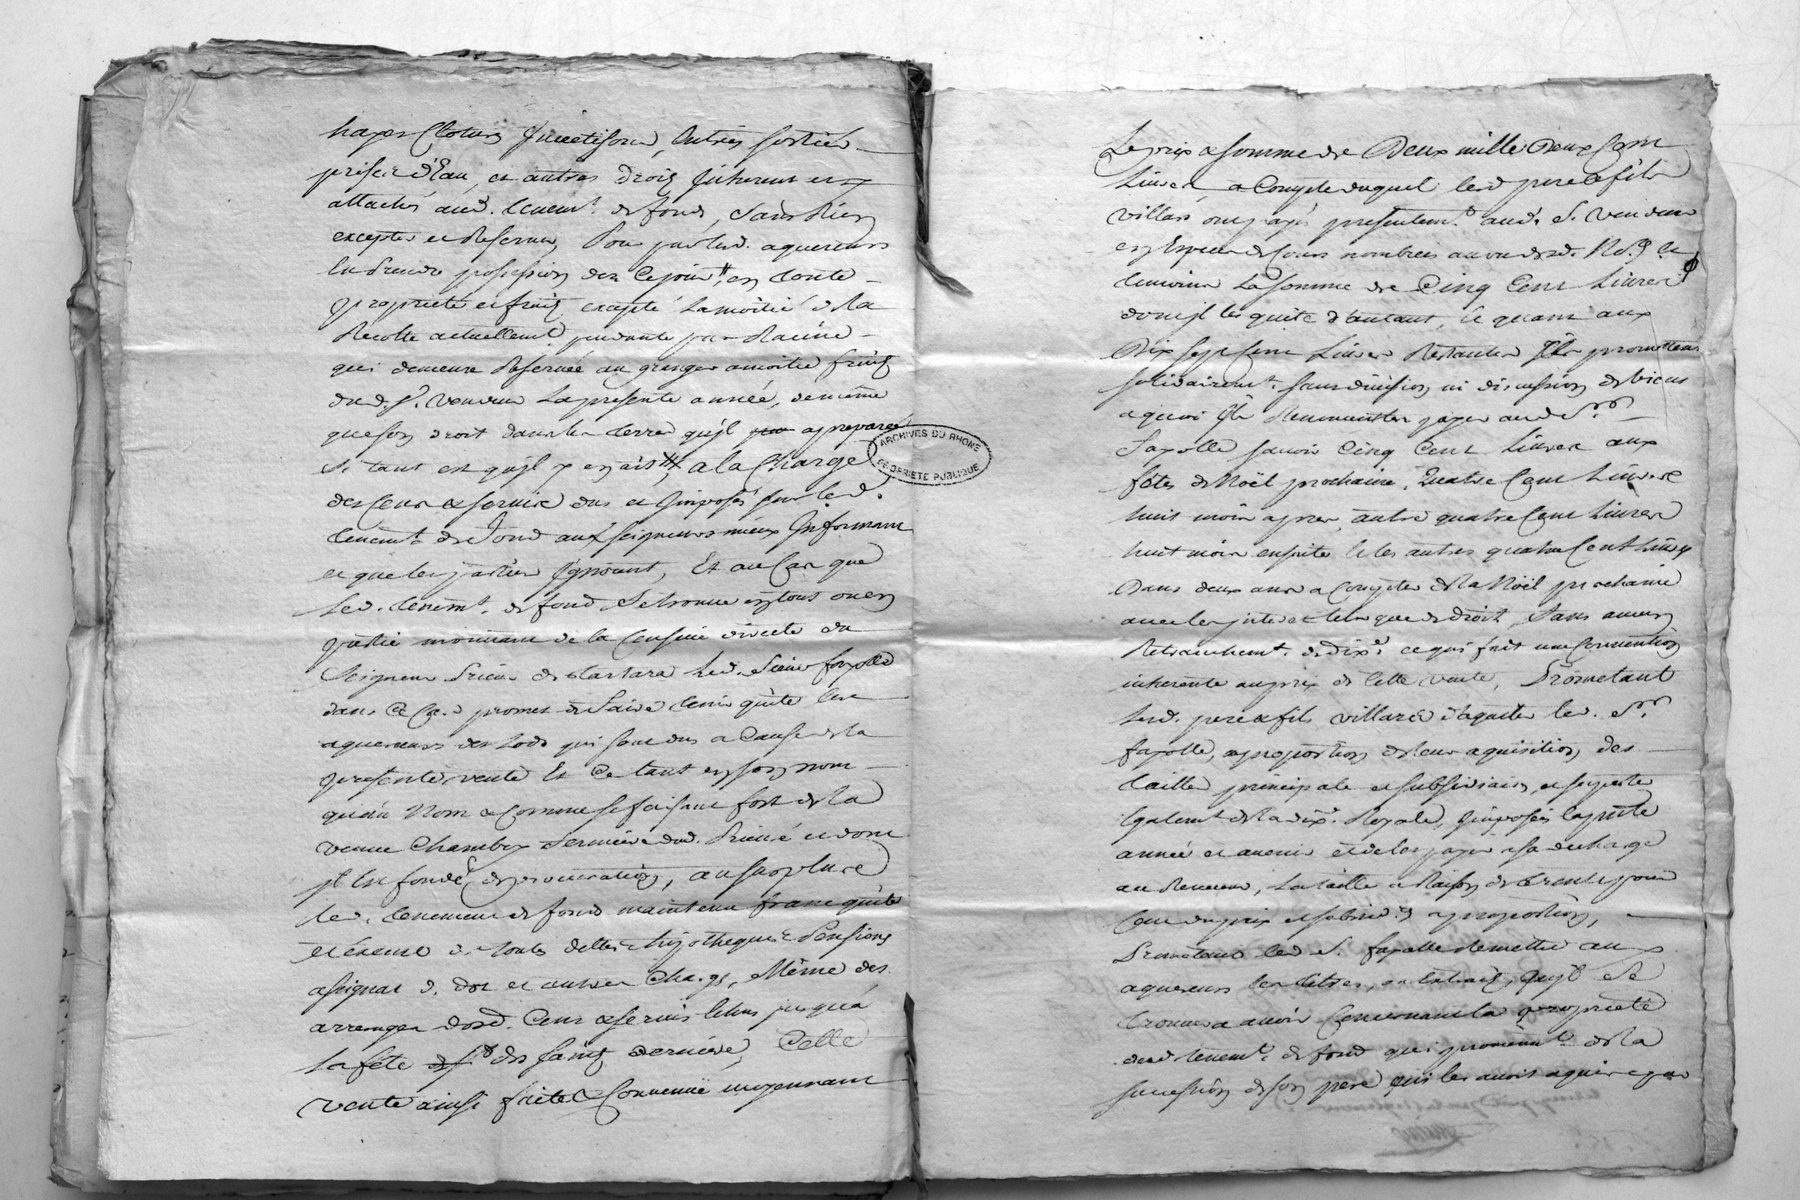 hayes Clotures Jncetisons, Entrées sorties
prises d'Eau, et autres droits Jnherent et
attachés aud. tenemt. de fond, sans Rien
excepter et Reserver, Pour par lesd. aquereurs
En prendre possession dez Cejourd., en toute
propriété et fruits, excepté La moitié de La
Recolte actuellemt. pendante par Racine
qui demeure Reservée au granger a moitié fruits
dud. Sr. Vendeur La presente année, de meme
que son droit dans les terres qu'jl a preparées
si tant est qu'jl y en ait, a la Charge
des Cens & servis dus et Jmposés sur led.
tenemt. de fond aux seigneurs mieux Jnformant
et que les parties Jgnorent, Et au Cas que
led. tenemt. de fond se trouve en tout ou en
partie mouvant de la Censive directe du
Seigneur Prieur de tartara led. Sieur fayolle
dans Ce Cas promet de faire tenir quitte les
aquereurs des Lods qui sont dus a Cause de la
presente vente Et Ce tant en son nom
qu'au Nom & Comme se faisant fort de La
veuve Chambry fermiere dud. Prieuré et dont
jl En fondé de procuration, au surplus
led. tenement de fond maintenu franc quitte
et Exempt de toutes dettes hypotheques Pensions
assignat de dot et autres Charges, Même des
arrerages desd. Cens & servis Echus jusqu'a
La fête des saints derniere, Celle
vente ainsi faite & Convenuë moyennant
Le prix & somme de Deux mille Deux Cent
Livres, a Compte duquel lesd. pere & fils
Villars ont payé presentemt. aud. Sr. Vendeur
en Especes de Cours nombrées au vu desd. No.re et
temoins La somme de Cinq Cent Livres
dont jl les quite d'autant, Et quant aux
Dix sept Cent Livres Restantes Jls promettent
solidairemt. sans division ni discussion de biens
a quoi Jls Renoncent les payer aud. Sr.
fayolle savoir Cinq Cent Livres aux
fêtes de Noël prochaine, Quatre Cent Livres
huit mois apres, autre quatre Cent Livres
huit mois ensuite & les autres quatre Cent Livres
Dans deux ans a Compter de la Noël prochaine
avec les jnterets tels que de droit, Sans aucun
Retranchemt. de dixe. ce qui fait une Convention
inherente au prix de Cette vente, Prometant
lesd. pere & fils Villars d'aquiter led. Sr.
fayolle, a proportion de leur aquisition des
tailles principale et subsidiaire, et
Egalemt. de la dixe. Royale, Jmposées la pnte
année et avenir et de les payer a sa decharge
au Receveur, La taille a Raison de trente pour
Cent du prix et subsid.e a proportion,
Prometant led. Sr. fayolle Remettre aux
aquereurs les titres, ou Extraits, qu'jl Se
trouvera avoir Concernant la proprieté
dud. tenemt. de fond qui provient de la
succession de son pere qui les avoit aquis par
ARCHIVES DU RHONE
PROPRIETE PUBLIQUE